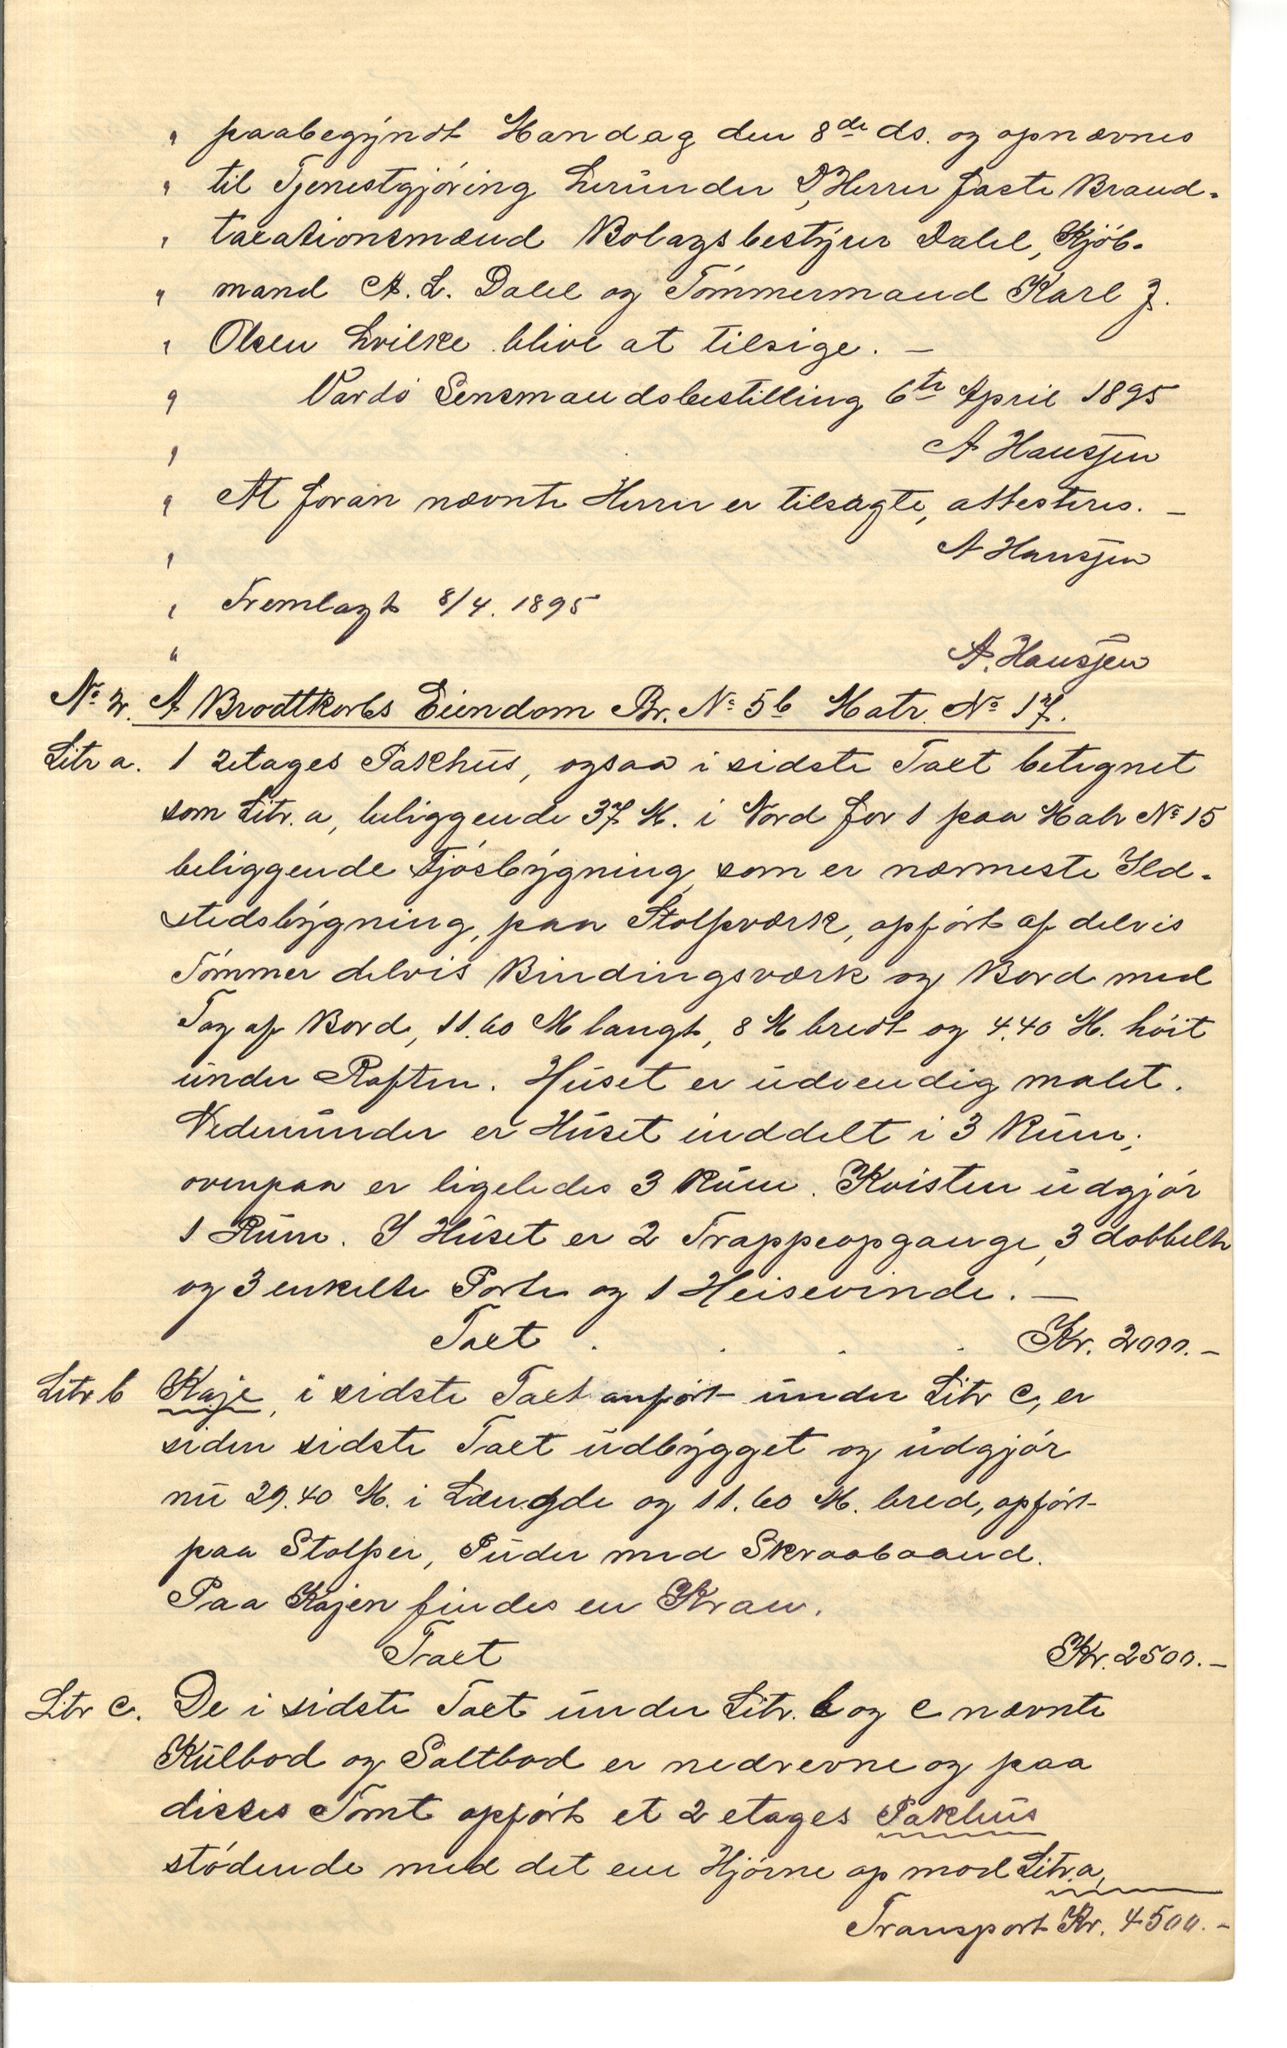 " paabegyndt Mandag den 8de ds. og opnævnes
" til Tjenestgjøring herunder D'Herrer faste Brand-
" taxationsmænd Bolagsbestyrer Dahl, Kjöb-
" mand A. L. Dahl og Tömmermand Karl J.
" Olsen hvilke blive at tilsige. —
" Vardö Lensmandsbestilling 6te April 1895
" A Hanssen
" At foran nævnte Herrer er tilsagte, attesteres. —
" A Hanssen
" Fremlagt 8/4. 1895
" A. Hanssen
No 2. A Brodtkorbs Eiendom Br. No 5b Matr. No 17.
Litr a. 1 2etages Pakhus, ogsaa i sidste Taxt betegnet
som Litr. a, beliggende 37 M. i Nord for 1 paa Matr No 15
beliggende Fjösbygning, som er nærmeste Ild-
stedsbygning, paa Stolpværk, opfört af delvis
Tömmer delvis Bindingsværk og Bord med
Tag af Bord, 11.60 M langt, 8 M bredt og 4.40 M. höit
under Raften. Huset er udvendig malet.
Nedenunder er Huset inddelt i 3 Rum;
ovenpaa er ligeledes 3 Rum. Kvisten udgjör
1 Rum. I Huset er 2 Trappeopgange, 3 dobbelte
og 3 enkelte Porte og 1 Heisevinde. —
Taxt . . . . Kr. 2000.—
Litr b Kaje, i sidste Taxt anfört under Litr c, er
siden sidste Taxt udbygget og udgjör
nu 29.40 M. i Længde og 11.60 M. bred, opfört
paa Stolper, Puder med Skraabaand.
Paa Kajen findes en Kran.
Taxt Kr. 2500.—
Litr c. De i sidste Taxt under Litr. b og c nævnte
Kulbod og Saltbod er nedrevne og paa
disses Tomt opfört et 2 etages Pakhus
stödende med det ene Hjörne op mod Litr. a,
Transport Kr. 4500.—